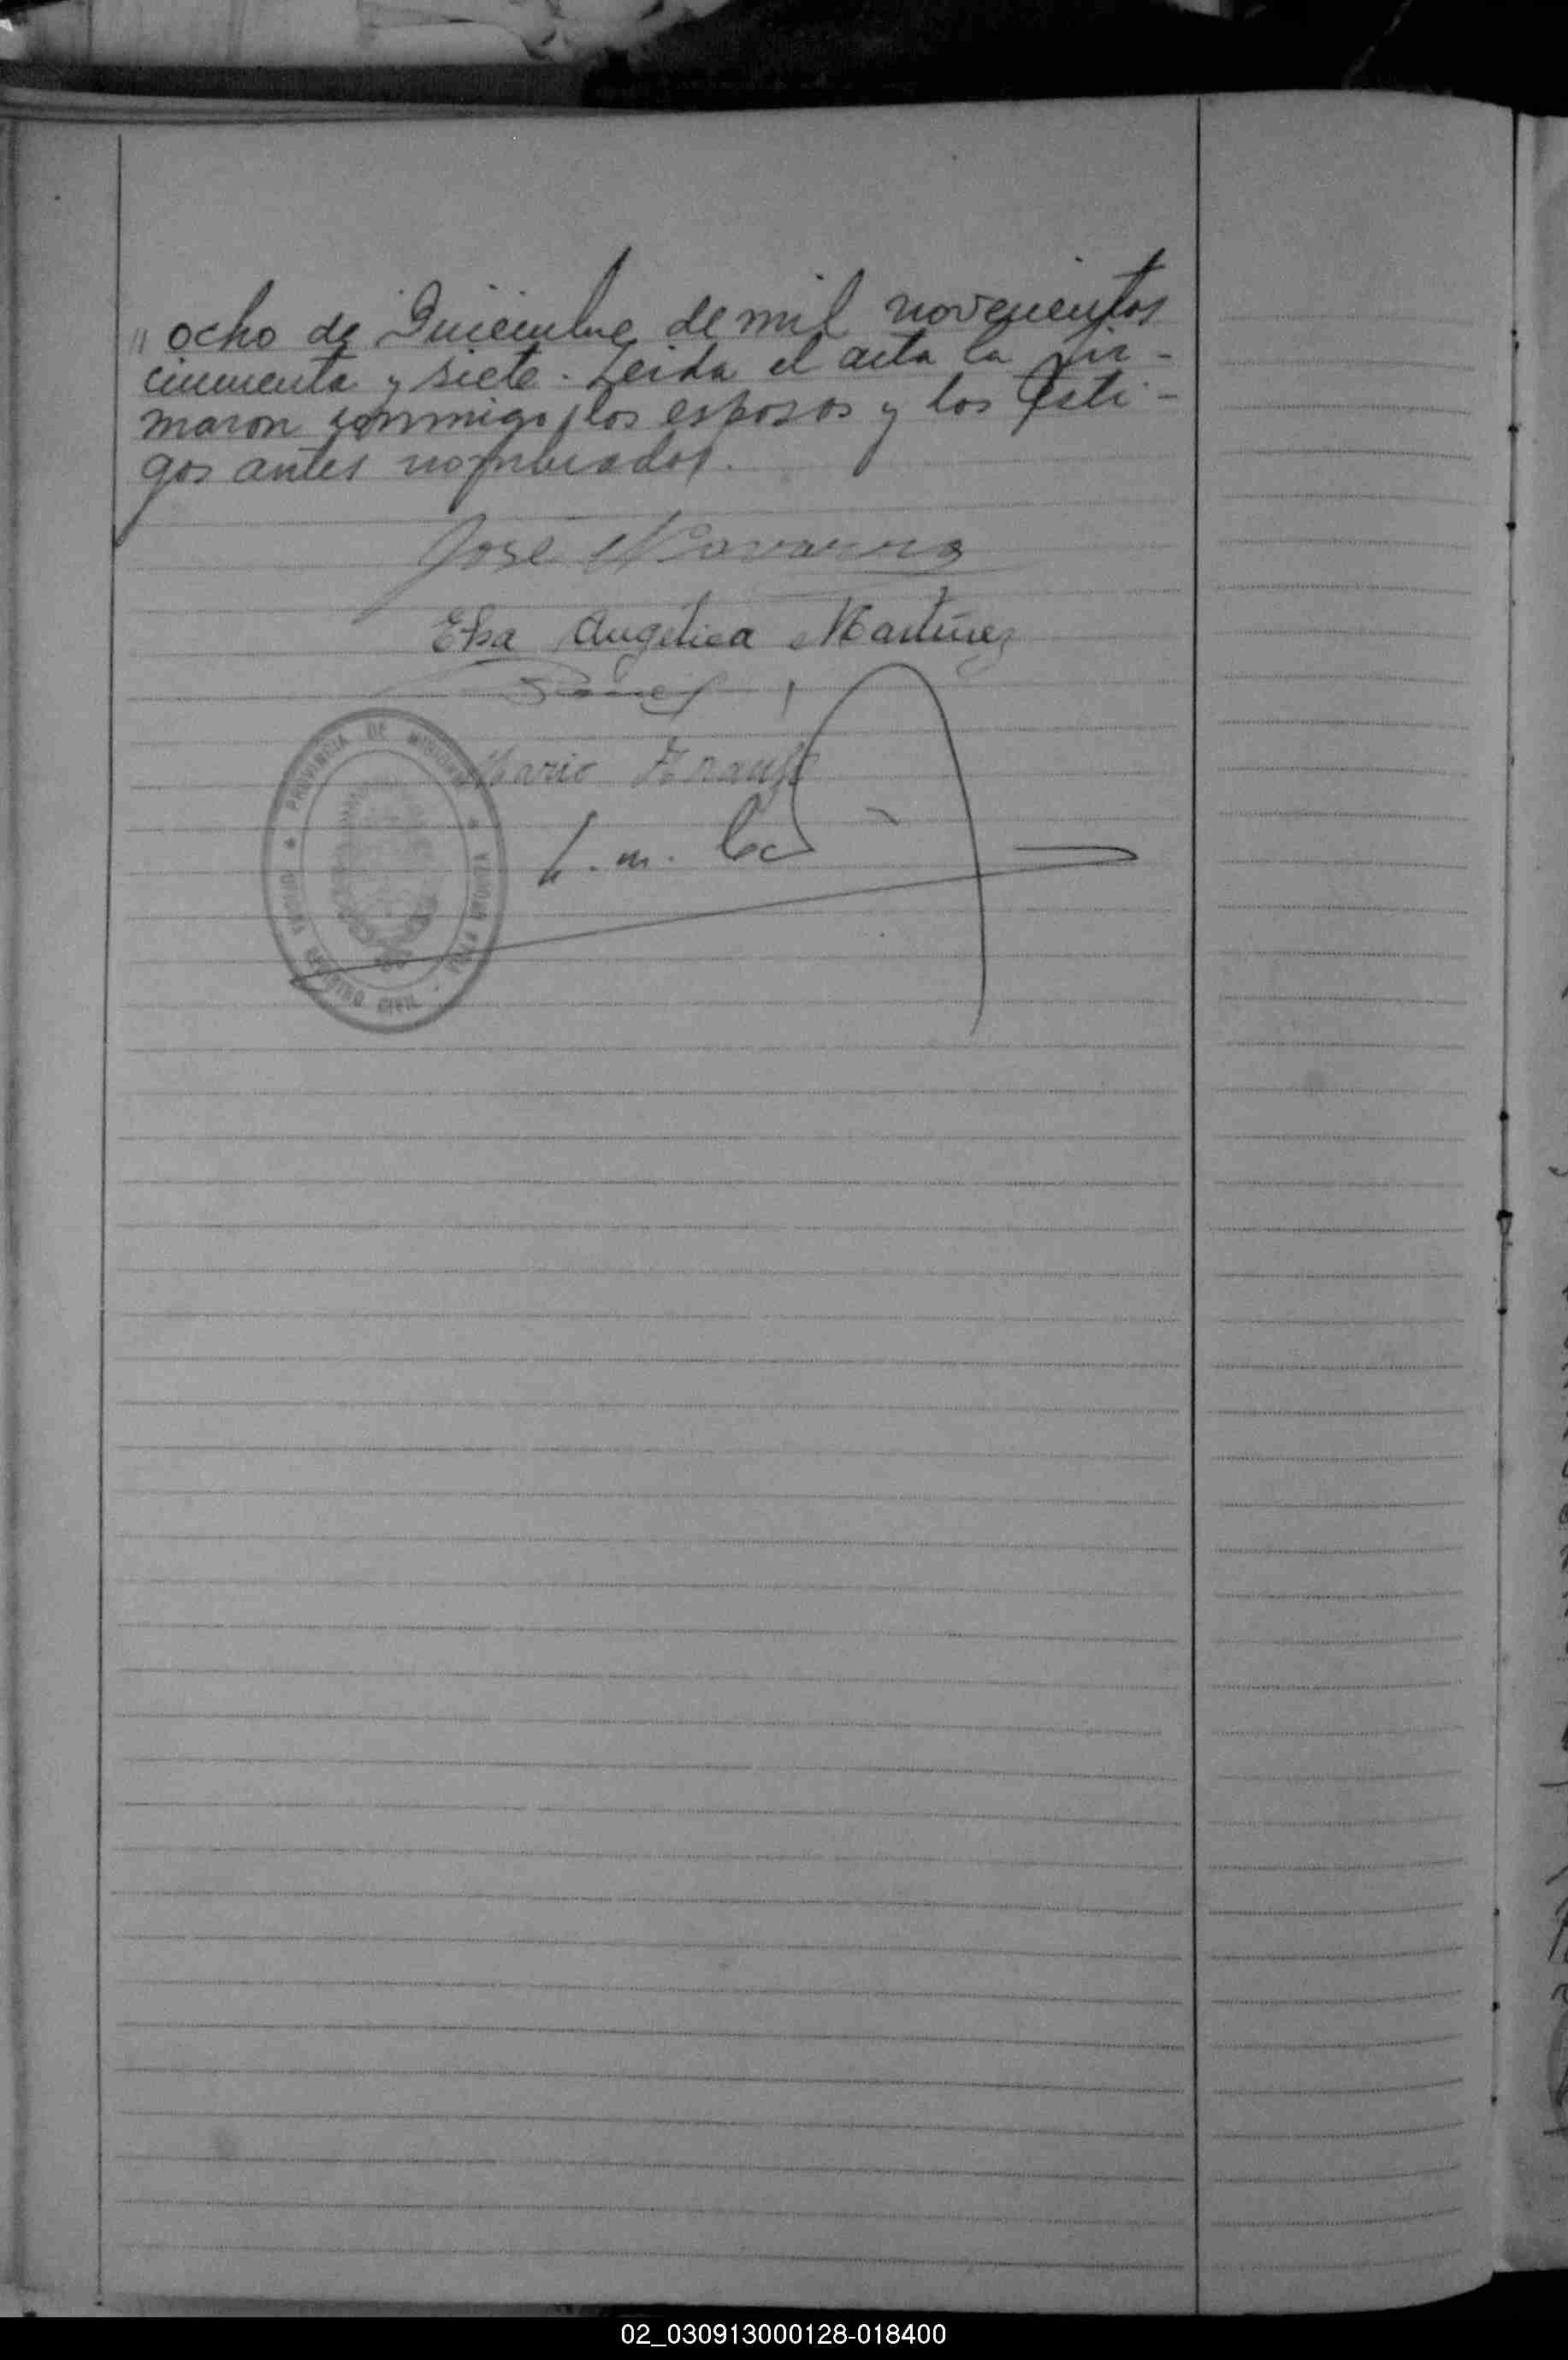 " ocho de Diciembre de mil novecientos
cincuenta y siete. Leida el acta la fir-
maron conmigo, los esposos y los testi-
gos antes nombrados.
Jose Navarro
Elsa Angélica Martínez
Mario
PROVINCIA DE MISIONES
REGISTRO CIVIL
02_030913000128-018400